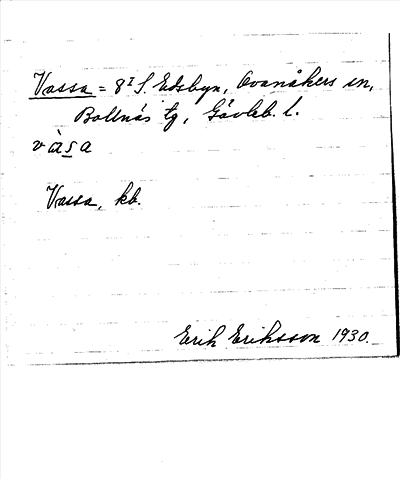 Vassa = 8<sup>I</sup> S. Edsbyn, Ovanåkers sn,
Bollnäs tg, Gävleb. l.
vàsa
Vassa, kb.
Erik Eriksson 1930.